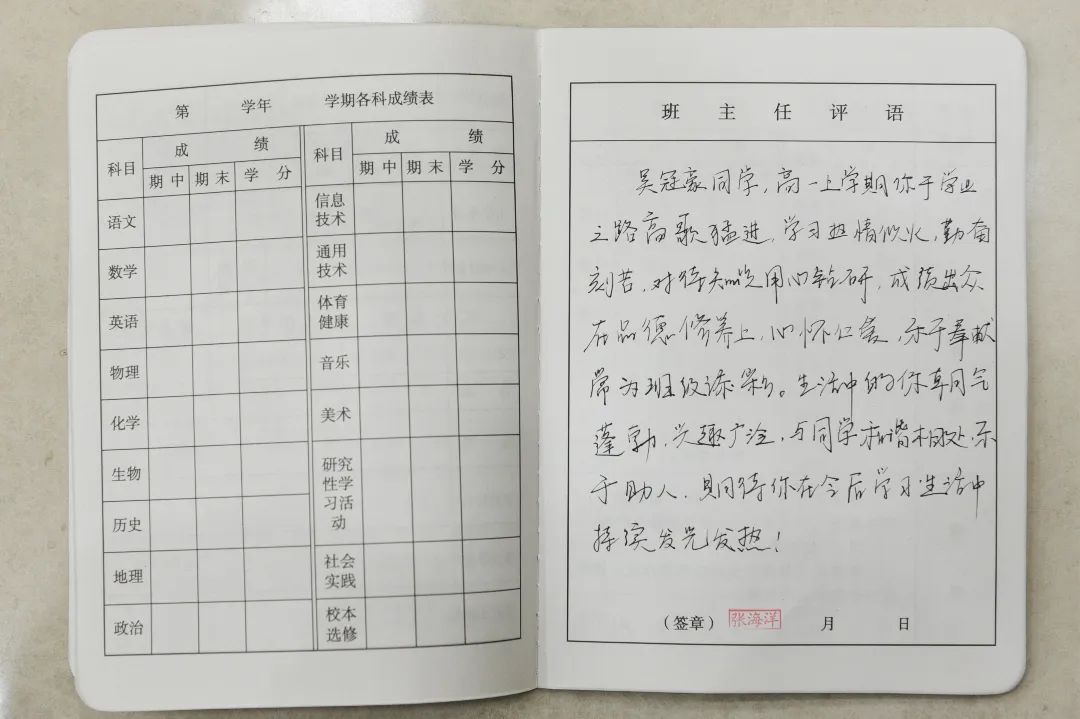 第 学年 学期各科成绩表
科目 成 绩 科目 成 绩
期中 期末 学 分 期中 期末 学 分
语文 信息技术
数学 通用技术
英语 体育健康
物理 音乐
化学 美术
生物 研究性学习活动
历史
地理 社会实践
政治 校本选修
班 主 任 评 语
吴冠豪同学,高一上学期你于学业
之路高歌猛进,学习热情似火,勤奋
刻苦,对待知识用心钻研,成绩出众
在品德修养上,心怀仁爱,乐于奉献
常为班级添彩。生活中的你朝气
蓬勃,兴趣广泛,与同学和谐相处,乐
于助人,期待你在今后学习生活中
持续发光发热!
(签章) 张海洋 月 日